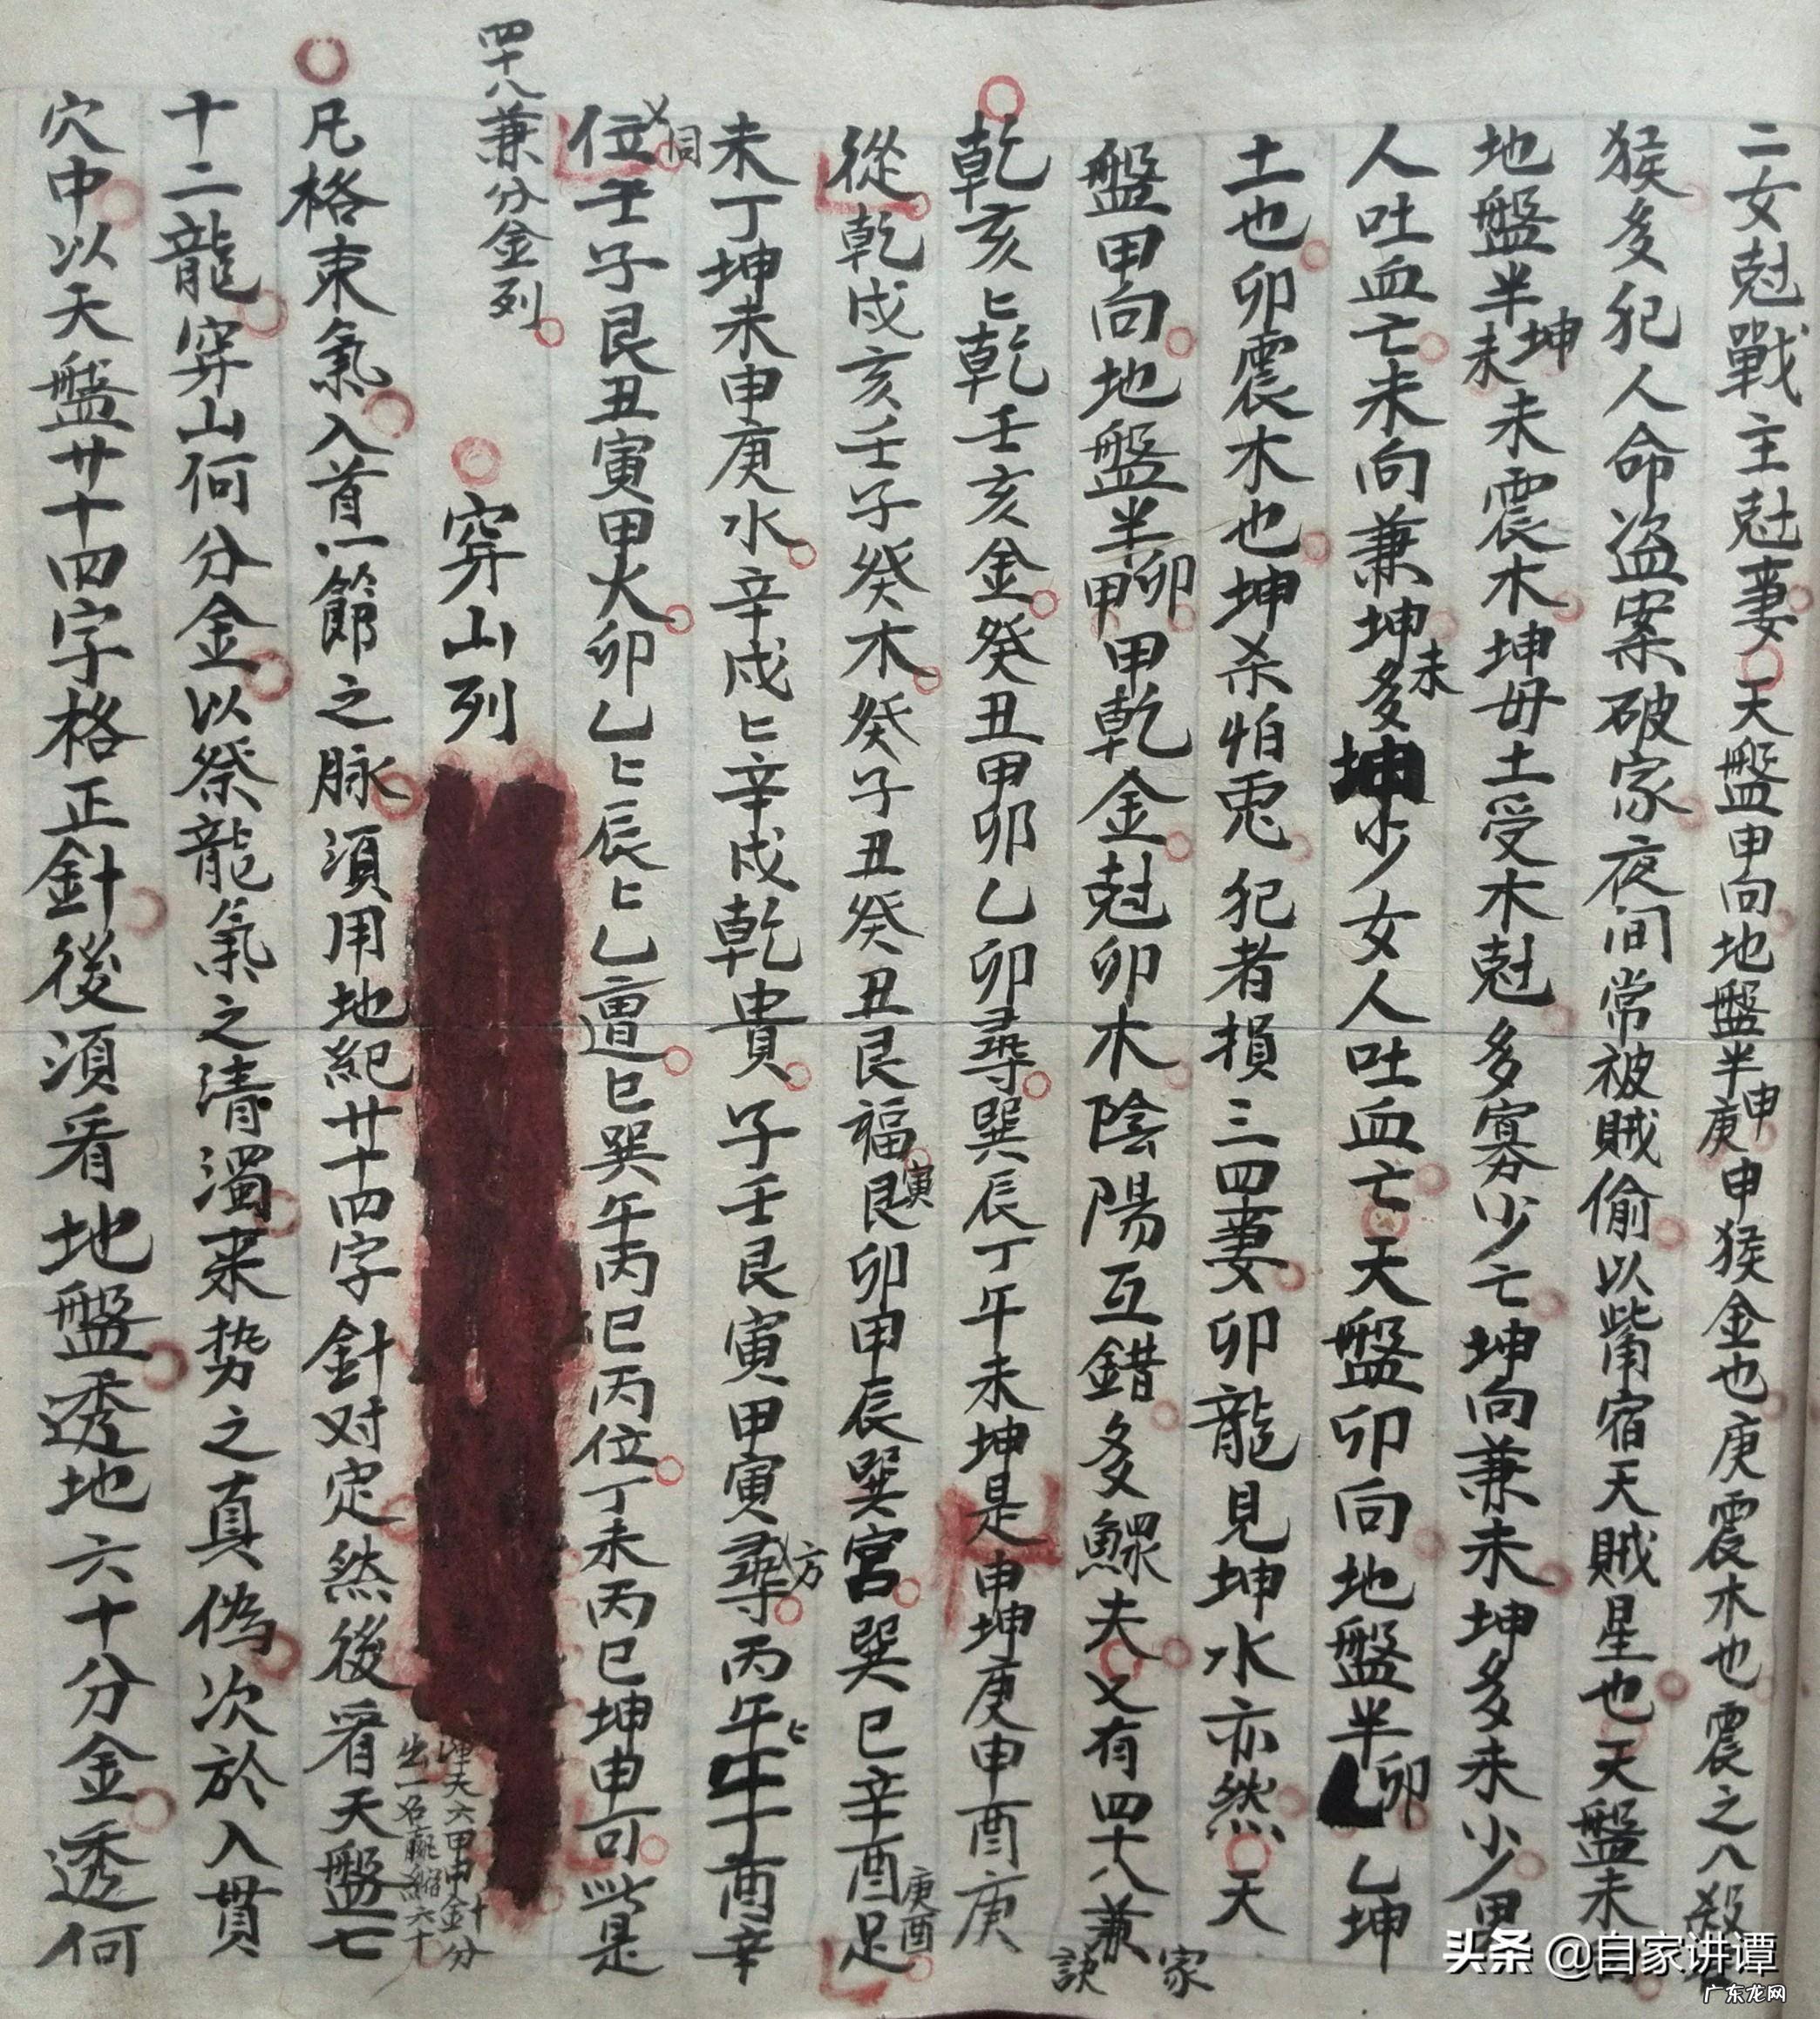 二女尅戰主尅妻天盤申向地盤半申庚申猴金也庚震木也震之八殺
猴多犯人命盜案破家夜间常被賊偷以觜宿天賊星也天盤未
地盤半坤未未震木坤母土受木尅多寡少亡坤向兼未坤多未少男
人吐血亡未向兼坤多未少女人吐血亡天盤卯向地盤半卯乙坤
土也卯震木也坤杀怕兎犯者損三四妻卯龍見坤水亦然天
盤甲向地盤半卯甲甲乾金尅卯木陰陽互錯多鰥夫又有四十八兼
家訣
乾亥匕乾壬亥金癸丑甲卯乙卯尋巽辰丁午未坤是申坤庚申酉庚
從乾戌亥壬子癸木癸子丑癸丑艮福艮寅卯甲辰巽宮巽巳辛酉庚酉足
未丁坤未申庚水辛戌匕辛戌乾貴子壬艮寅甲寅尋方丙午匕丁酉辛
位同壬子艮丑寅甲火卯乙匕辰匕乙遭巳巽午丙巳丙位丁未丙巳坤申可此是
四十八兼分金列
穿山列
渾天六甲申金針分
出一名贏縮六十
凡格束氣入首一節之脉須用地紀廿十四字針对定然後看天盤七
十二龍穿山何分金以祭龍氣之清濁来势之真偽次於入貫
穴中以天盤廿十四字格正針後須看地盤透地六十分金透何
头条 @自家讲谭
广东龙网